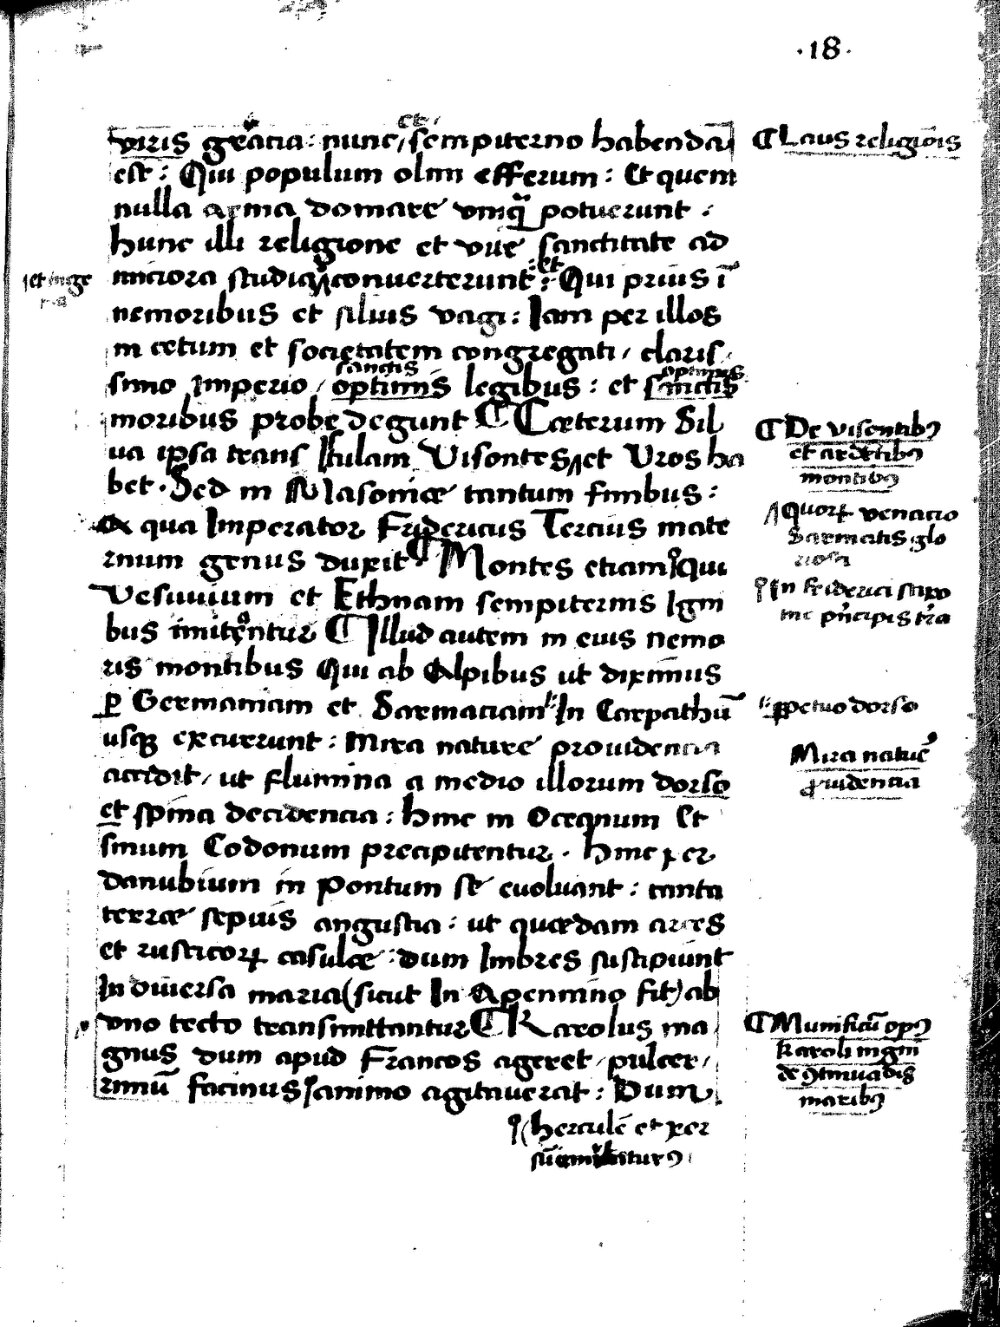 ·18·
et
viris gratia: nunc, sempiterno habendaͣ
est: Qui populum olim efferum: Et quem
nulla arma domare vmqͣ potuerunt:
hunc illi religione et vite sanctitate ad
miciora studia, converterunt: et Qui prius ī
nemoribus et siluis vagi: Iam per illos
in cetum et societatem congregati, claris,
sanctis optimis
simo Imperio, optimis legibus: et sanctis
moribus probe degunt ¶ Cæterum Sil
ua ipsa trans Istulam Visontes, et Uros ha
bet. Sed in Masoniæ tantum finibus:
Ex qua Imperator Fridericus Tercius mate
rnum genus duxit ¶ Montes etiam Qui
Vesuuium et Ethnam sempiternis Igni
bus imitentur ¶ Illud autem in eius nemo
ris montibus Qui ab Alpibus ut diximus
ꝑ Germaniam et Sarmaciam In Carpathū
usqꝫ excurrunt: Mira nature prouidencia
accidit, ut flumina a medio illorum dorso
et spina decidencia: hinc in Oceanum Et
sinum Codonum precipitentur. hinc per
danubium in pontum se euoluant: tanta
terræ sepius angustia: ut quædam arces
et rusticoꝝ casulæ: dum Imbres suscipiunt
In diuersa maria (sicut In Apennino fit) ab
vno tecto transmittantur ¶ Karolus ma,
gnus dum apud Francos ageret, pulcer,
rimū facinus animo agitauerat: Dum
(herculē et xer
¶ Laus religiōis
et inge
¶ De visontibꝰ
et ardētibꝰ
montibꝰ
quorꝝ venacio
Sarmatis glo
riosa
In friderici stirp
ꝑpetuo dorso
Mira naturē
ꝓuidencia
¶ Munificū opꝰ
Karoli mgni
de ꝯtinuādis
maribꝰ